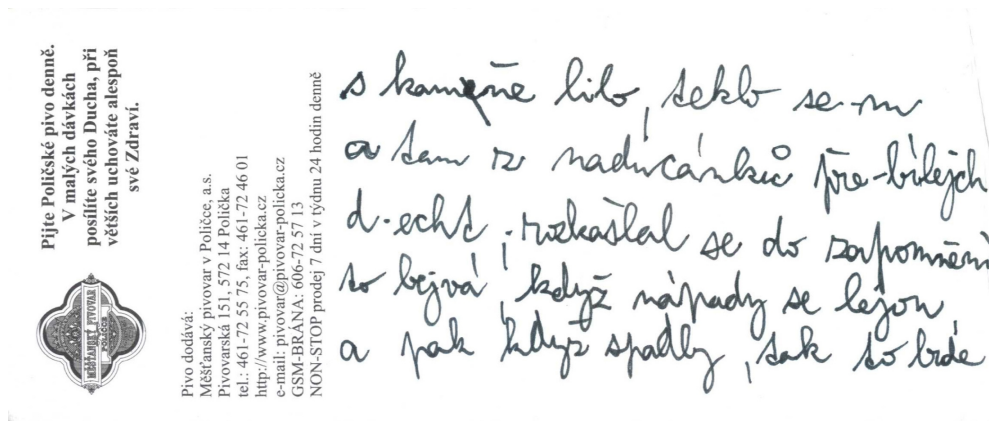 Pijte Poličské pivo denně.
V malých dávkách
posílíte svého Ducha, při
větších uchováte alespoň
své Zdraví.
MĚŠŤANSKÝ PIVOVAR
POLIČCE
Pivo dodává:
Měšťanský pivovar v Poličce, a.s.
Pivovarská 151, 572 14 Polička
tel.: 461-72 55 75, fax: 461-72 46 01
http://www.pivovar-policka.cz
e-mail: pivovar@pivovar-policka.cz
GSM-BRÁNA: 606-72 57 13
NON-STOP prodej 7 dní v týdnu 24 hodin denně
s kameňe lilo, teklo se-m
a tam iz naducánků pře-bílejch
d-echt, rozkašlal se do zapomnění
to bejvá, když nápady se lejou
a pak když spadly, tak to bude